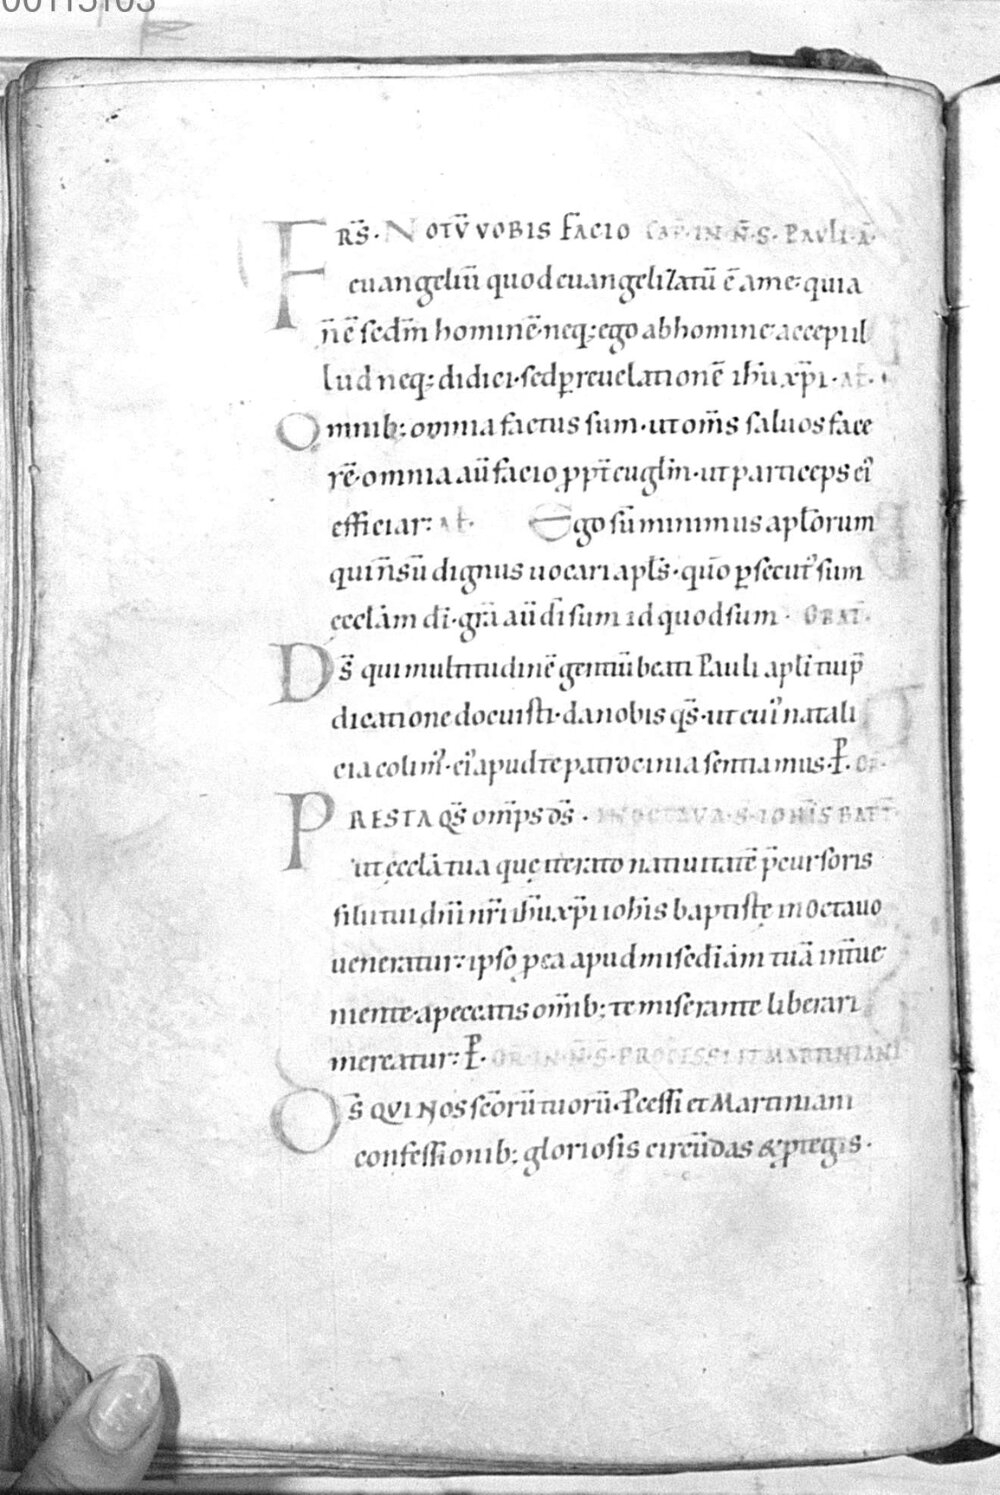 00115103
FRS̄· NOTŪ VOBIS FACIO CAP̄·IN N̄·S·PAULI·A
euangeliū quod euangelizatū ē a me; quia
n̄ ē sedm̄ hominē· neq; ego ab homine accepi il
lud neq; didici· sed p reuelationē ih̄u xp̄i· AL̄·
Omnib; omnia factus sum· ut om̄s saluos face
rē· omnia aū facio ppt̄ euglīn· ut particeps eī
efficiar: AL̄· Ego sū minimus aplōrum
qui n̄ sū dignus uocari apl̄s· qūo psecut᾽ sum
ecclām dī· grā aū dī sum id quod sum· ORAT̄·
DS̄ qui multitudinē gentiū beati Pauli aplī tui p̄
dicatione docuisti· da nobis qs̄· ut cui᾽ natali
cia colim᾽· ei᾽ apud te patrocinia sentiamus· P̄· OR̄·
PRESTA QS̄ om̄ps DS̄· IN OCTAVA·S·IOHIS BAPT̄·
ut ecclā tua quę iterato natiuitatē p̄cursoris
filii tui dn̄i nr̄i ih̄u xp̄i iohīs baptistę in octauo
ueneratur: ipso p ea apud misediām tuā int̄ue
niente· a peccatis om̄ib; te miserante liberari
mereatur: P̄· OR̄·IN·N̄·S̄·PROCESSI ET MARTINIANI
DS̄ QUI NOS scōrū tuorū Pcessi et Martiniani
confessionib; gloriosis circūdas & ptegis·